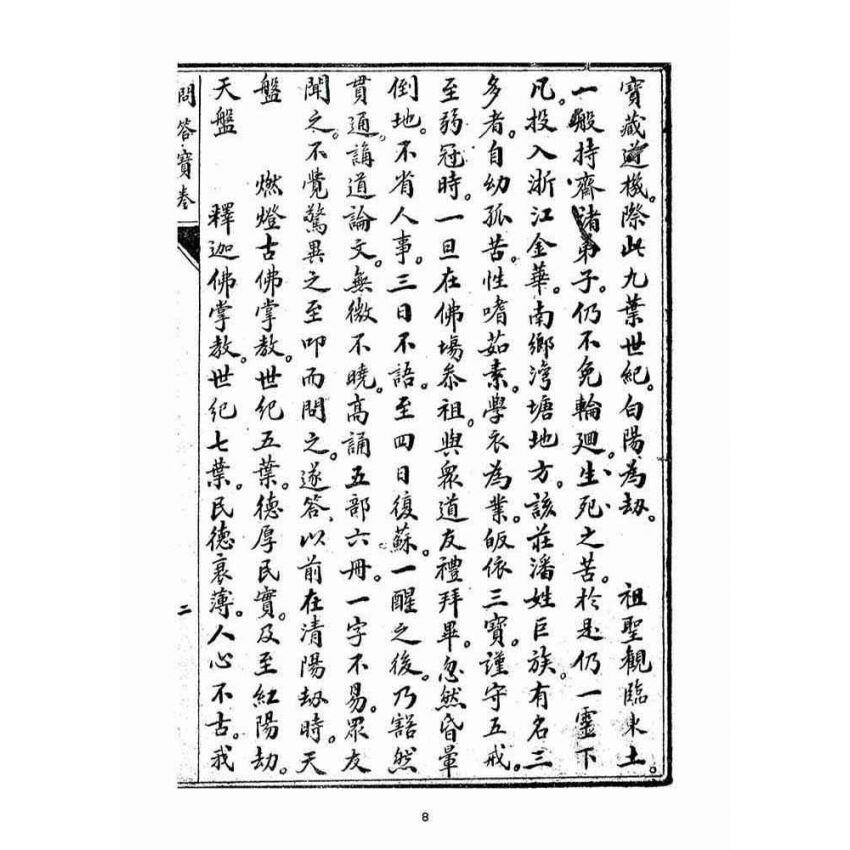 寶藏道機。際此九葉世紀。白陽為劫。　祖聖觀臨東土。
一般持齋諸弟子。仍不免輪廻。生死之苦。於是仍一靈下
凡。投入浙江金華。南鄉灣塘地方。該莊潘姓巨族。有名三
多者。自幼孤苦。性嗜茹素。學衣為業。皈依三寶。謹守五戒。
至弱冠時。一旦在佛塲叅祖。與衆道友禮拜畢。忽然昏暈
倒地。不省人事。三日不語。至四日復蘇。一醒之後。乃豁然
貫通。講道論文。無微不曉。高誦五部六冊。一字不易。眾友
聞之。不覺驚異之至。叩而問之。遂答。以前在清陽劫時。天
盤　燃燈古佛掌教。世紀五葉。德厚民實。及至紅陽劫。
天盤　釋迦佛掌教。世紀七葉。民德衰薄。人心不古。我
問答寶卷
二
8